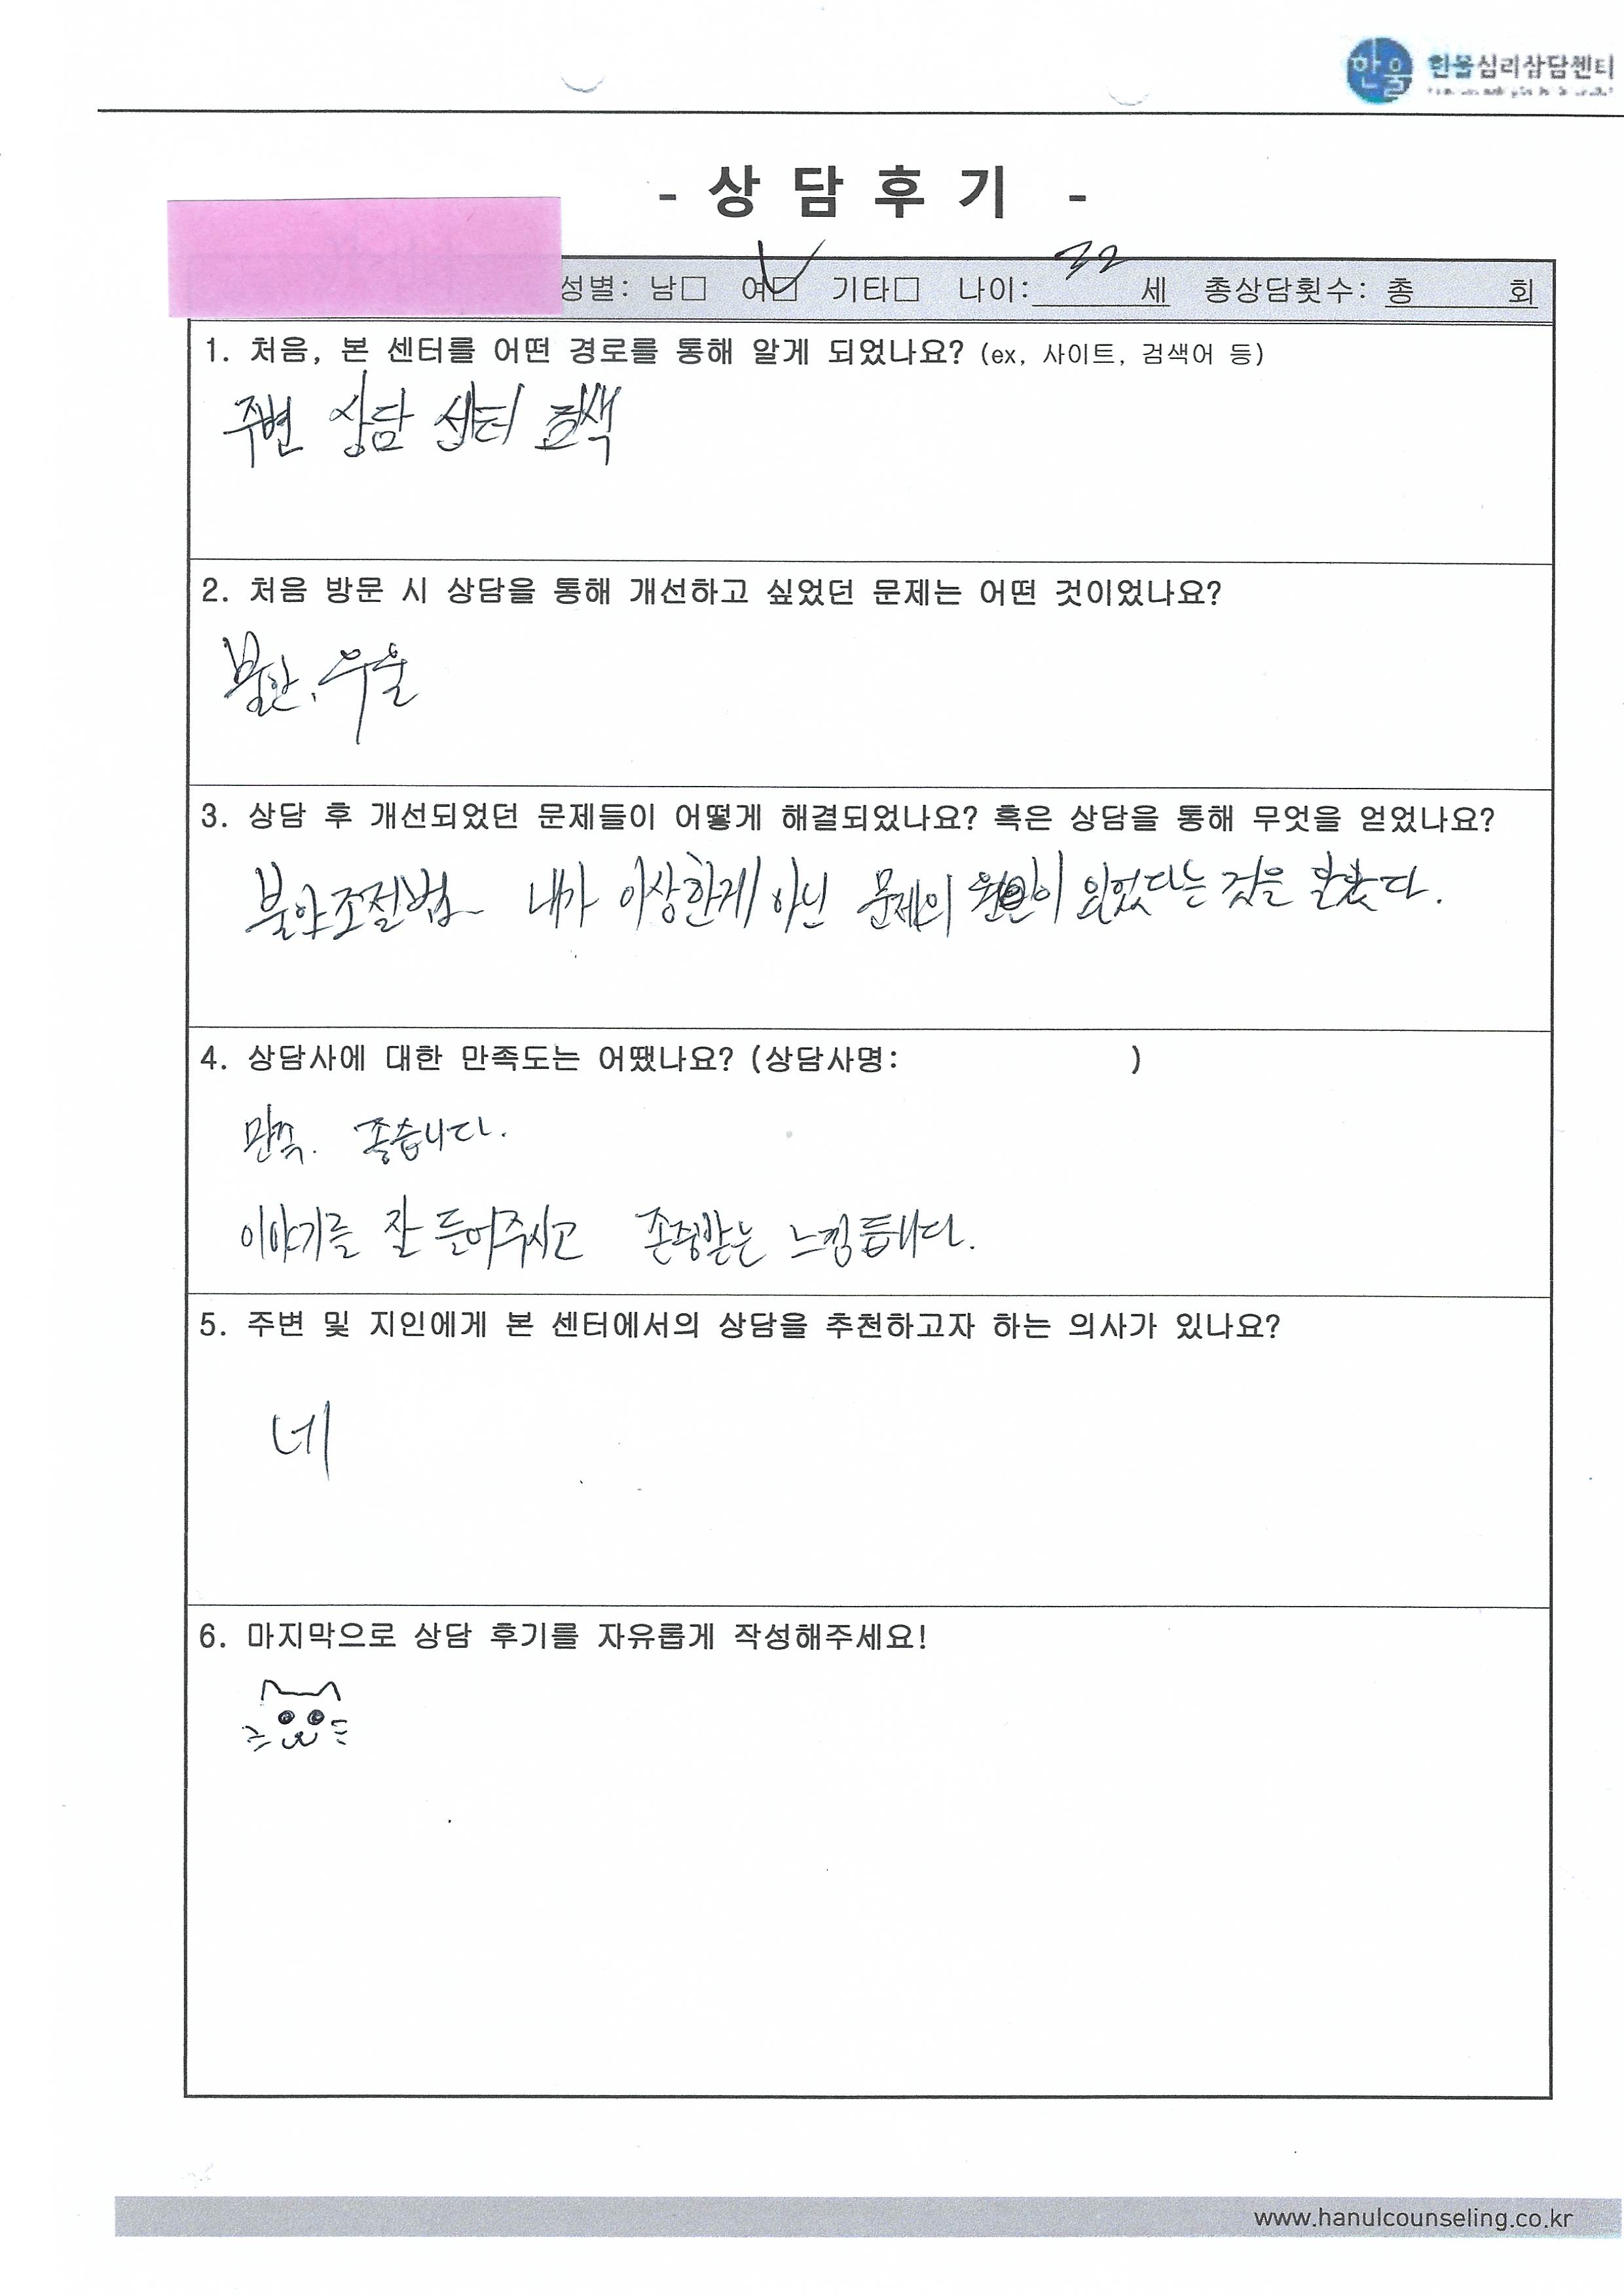 한울 한울심리상담센터
- 상 담 후 기 -
성별: 남□ 여□ 기타□ 나이: 32 세 총상담횟수: 총 회
1. 처음, 본 센터를 어떤 경로를 통해 알게 되었나요? (ex, 사이트, 검색어 등)
주변 상담 센터
2. 처음 방문 시 상담을 통해 개선하고 싶었던 문제는 어떤 것이었나요?
불안, 우울
3. 상담 후 개선되었던 문제들이 어떻게 해결되었나요? 혹은 상담을 통해 무엇을 얻었나요?
조절법 내가 이상한게 아닌 문제의 원인이 있었다는 것을
4. 상담사에 대한 만족도는 어땠나요? (상담사명: )
만족. 좋습니다.
이야기를 잘 들어주시고 존중받는 느낌 듭니다.
5. 주변 및 지인에게 본 센터에서의 상담을 추천하고자 하는 의사가 있나요?
네
6. 마지막으로 상담 후기를 자유롭게 작성해주세요!
www.hanulcounseling.co.kr